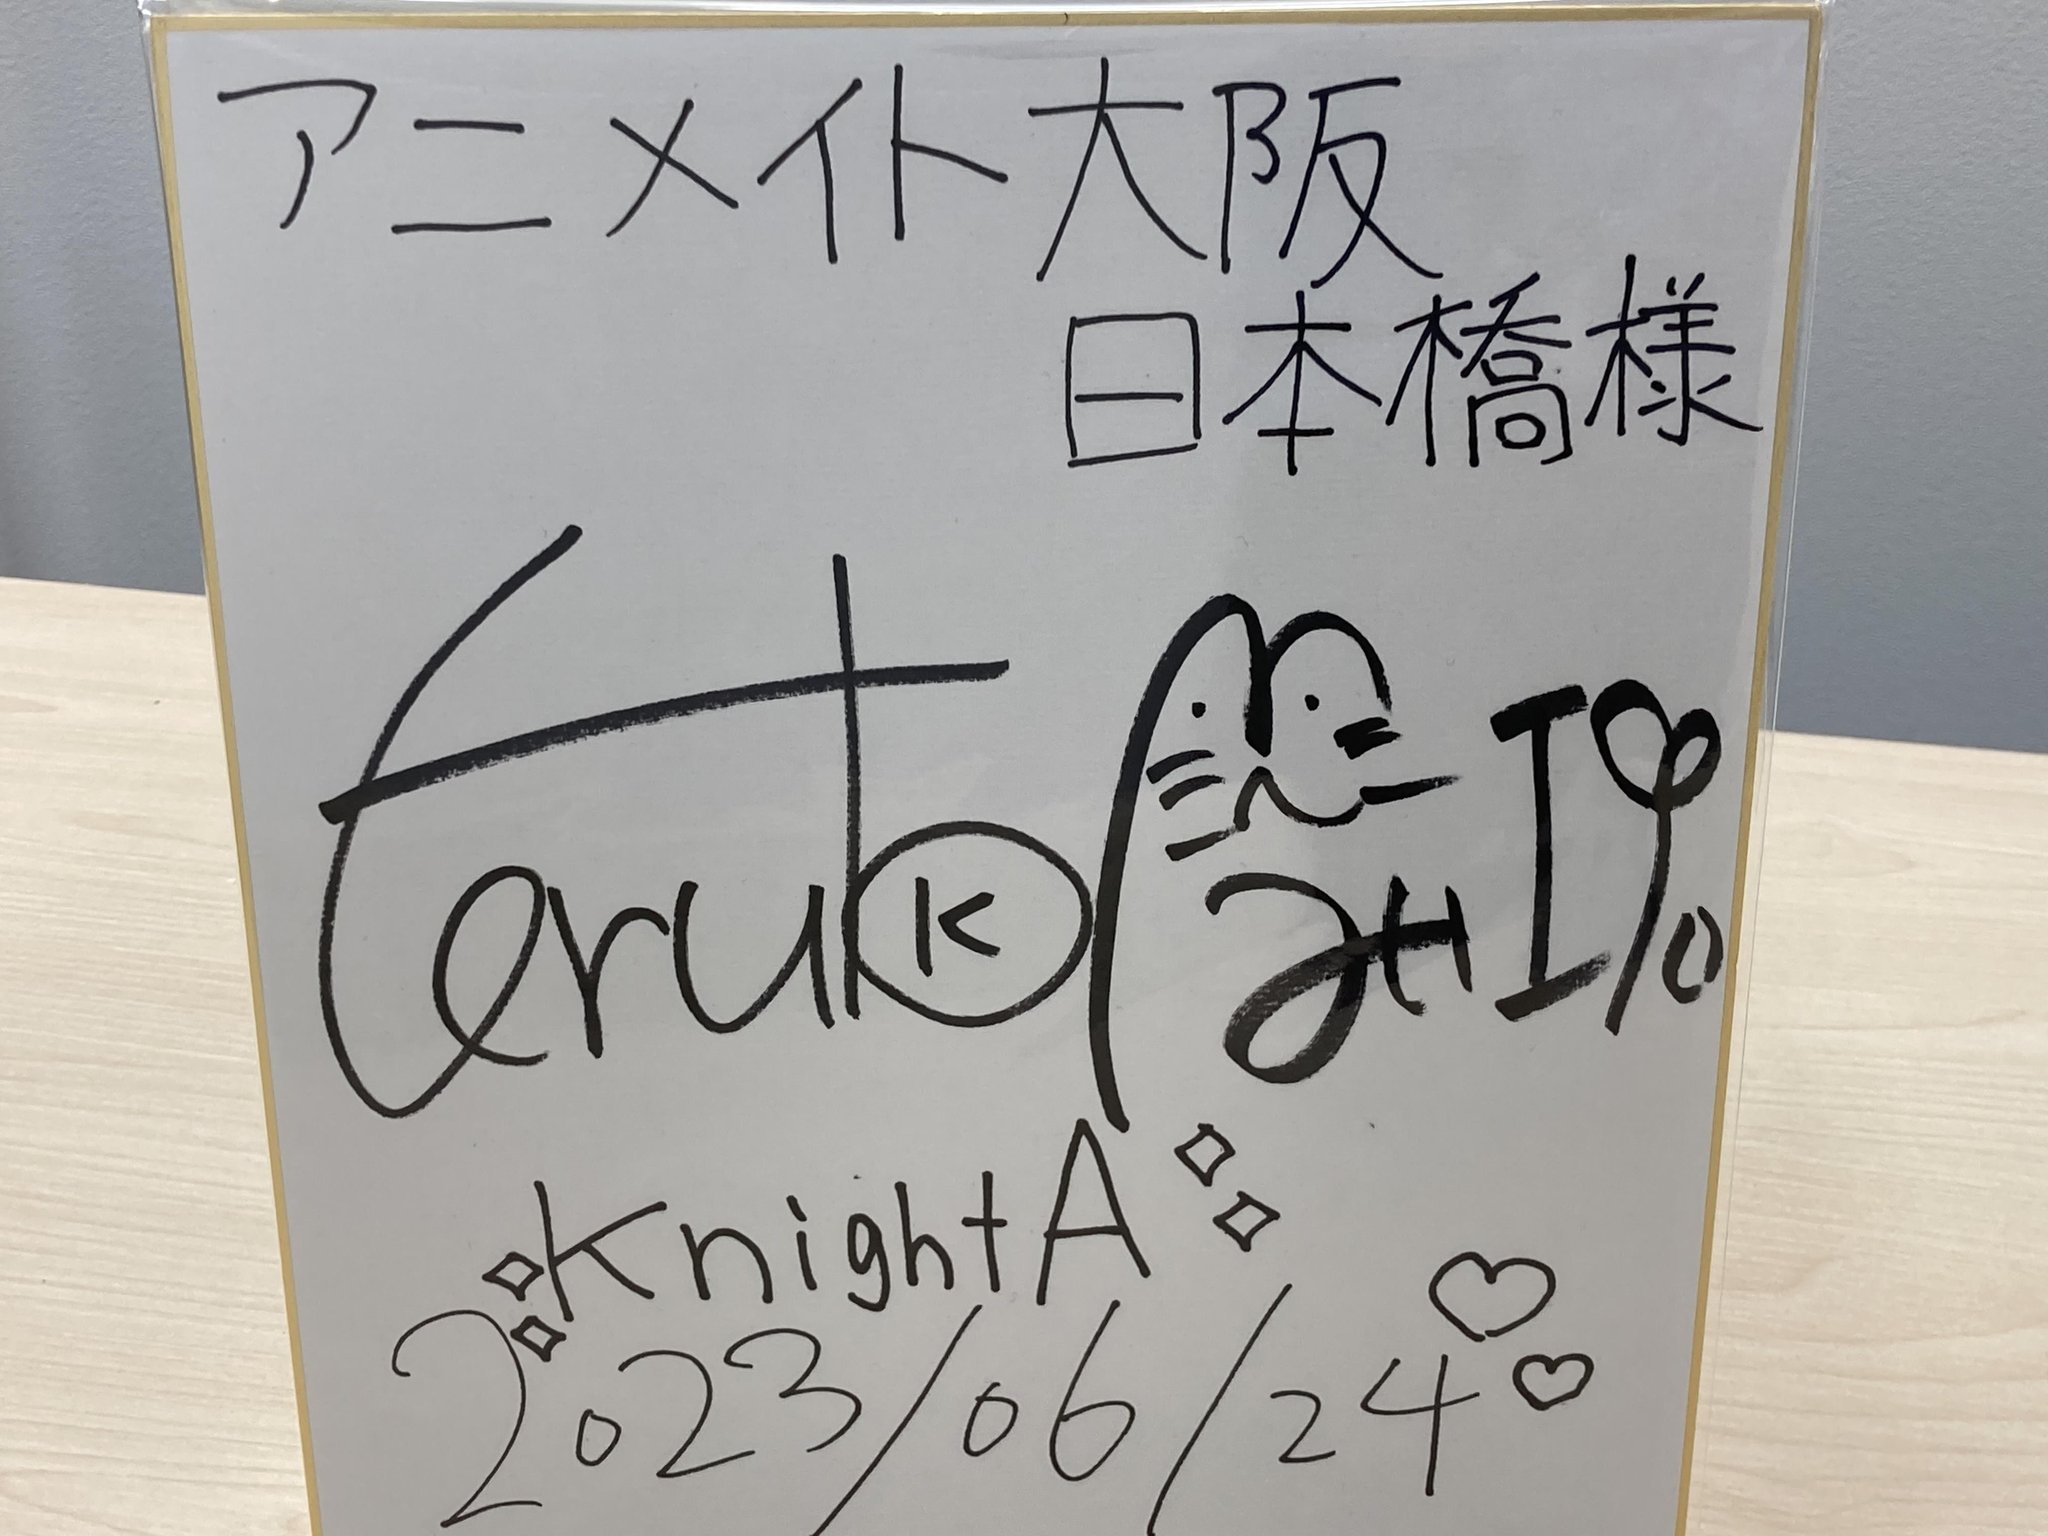 アニメイト大阪
日本橋様
Teruto
K
KnightA
2023/06/24